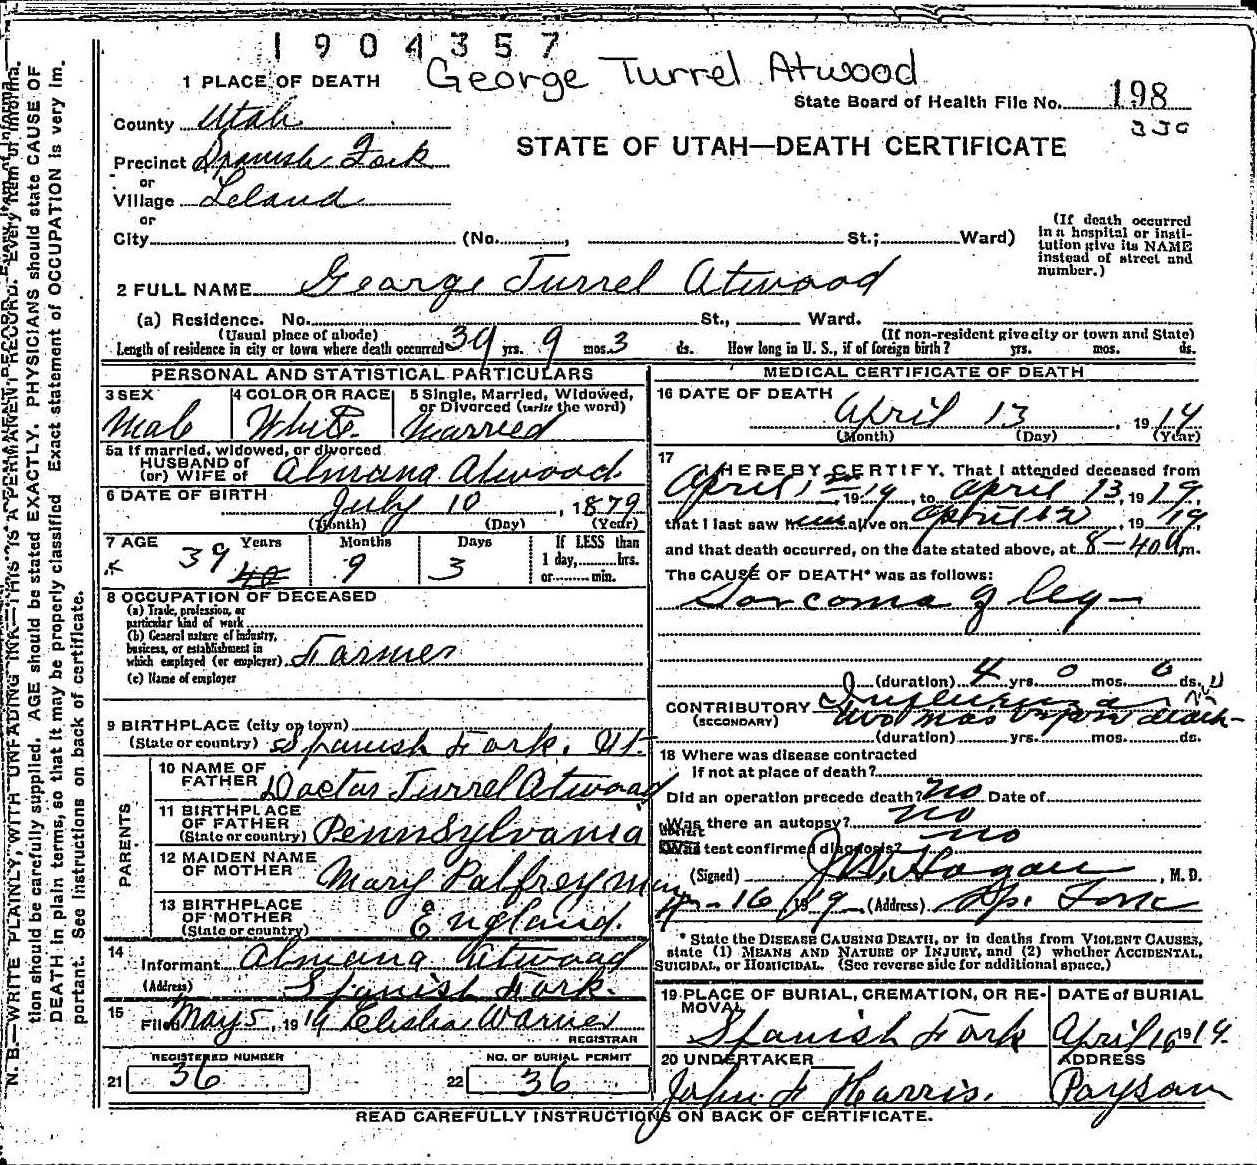 1904357
George Turrel Atwood
1 PLACE OF DEATH
State Board of Health File No. 198
330
County Utah
STATE OF UTAH—DEATH CERTIFICATE
Precinct Spanish Fork
or
Village Leland
or
City (No. , St.; Ward)
(If death occurred
in a hospital or insti-
tution give its NAME
instead of street and
number.)
2 FULL NAME George Turrel Atwood
(a) Residence. No. St., Ward.
(Usual place of abode) (If non-resident give city or town and State)
Length of residence in city or town where death occurred 39 yrs. 9 mos. 3 ds. How long in U. S., if of foreign birth? yrs. mos. ds.
PERSONAL AND STATISTICAL PARTICULARS
3 SEX
Male
4 COLOR OR RACE
White
5 Single, Married, Widowed,
or Divorced (write the word)
Married
5a If married, widowed, or divorced
HUSBAND of
(or) WIFE of Almana Atwood
6 DATE OF BIRTH July 10, 1879
(Month) (Day) (Year)
7 AGE Years Months Days If LESS than
1 day, hrs.
or min.
39 40 9 3
8 OCCUPATION OF DECEASED
(a) Trade, profession, or
particular kind of work
(b) General nature of industry,
business, or establishment in
which employed (or employer) Farmer
(c) Name of employer
9 BIRTHPLACE (city or town)
(State or country) Spanish Fork, Ut.
PARENTS
10 NAME OF
FATHER Doctor Turrel Atwood
11 BIRTHPLACE
OF FATHER
(State or country) Pennsylvania
12 MAIDEN NAME
OF MOTHER Mary Palfreyman
13 BIRTHPLACE
OF MOTHER
(State or country) England.
14
Informant Almana Atwood
(Address) Spanish Fork.
15
Filed May 5, 1919 Elisha Warner
REGISTRAR
REGISTERED NUMBER
21 36
NO. OF BURIAL PERMIT
22 36
MEDICAL CERTIFICATE OF DEATH
16 DATE OF DEATH
April 13, 1919
(Month) (Day) (Year)
17
I HEREBY CERTIFY, That I attended deceased from
April 1st 1919, to April 13, 1919,
that I last saw him alive on April 12, 1919,
and that death occurred, on the date stated above, at 8-40 a m.
The CAUSE OF DEATH* was as follows:
Sarcoma of leg—
(duration) 4 yrs. 0 mos. 0 ds.
CONTRIBUTORY Influenza
(SECONDARY) two mos before death-
(duration) yrs. mos. ds.
18 Where was disease contracted
If not at place of death?
Did an operation precede death? No Date of
Was there an autopsy? No
What test confirmed diagnosis? no
(Signed) J W. Hagan, M. D.
Apr-16 1919 (Address) Sp. Fork
* State the DISEASE CAUSING DEATH, or in deaths from VIOLENT CAUSES,
state (1) MEANS AND NATURE OF INJURY, and (2) whether ACCIDENTAL,
SUICIDAL, or HOMICIDAL. (See reverse side for additional space.)
19 PLACE OF BURIAL, CREMATION, OR RE-
MOVAL
Spanish Fork
DATE of BURIAL
April 16 1919.
20 UNDERTAKER
John F Harris.
ADDRESS
Payson
READ CAREFULLY INSTRUCTIONS ON BACK OF CERTIFICATE.
N. B.—WRITE PLAINLY, WITH UNFADING INK—THIS IS A PERMANENT RECORD. Every item of informa-
tion should be carefully supplied. AGE should be stated EXACTLY. PHYSICIANS should state CAUSE OF
DEATH in plain terms, so that it may be properly classified. Exact statement of OCCUPATION is very im-
portant. See instructions on back of certificate.